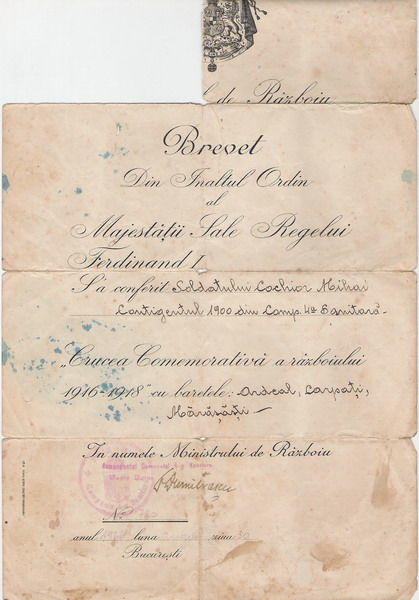 l de Războiu
Brevet
Din Inaltul Ordin
al
Majestății Sale Regelui
Ferdinand I
S'a conferit Soldatului Cochior Mihai
Contigentul 1900 din Comp. 4a Sanitară
„Crucea Comemorativă a războiului
1916-1918" cu baretele: Ardeal, Carpați,
Mărășăști
In numele Ministrului de Războiu
Dumitrescu
No
anul luna ziua 30
București